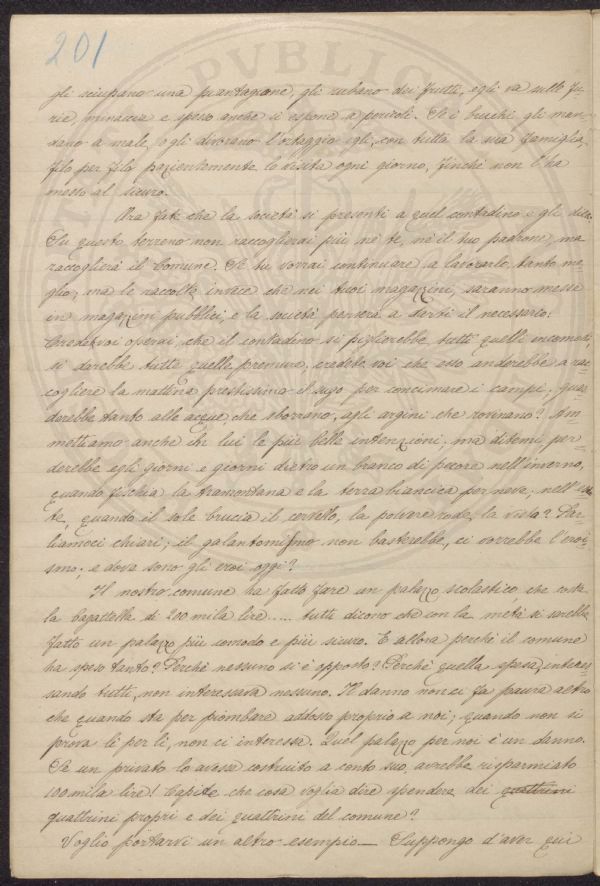 201
gli sciupano una piantagione, gli rubano dei frutti, egli va sulle fu-
rie, minaccia e spesso anche si espone a pericoli. Se i bruchi gli man-
dano a male, o gli divorano l'ortaggio egli, con tutta la sua famiglia,
filo per filo pazientemente lo visita ogni giorno, finchè non l'ha
messo al sicuro.
Ora fate che la società si presenti a quel contadino e gli dica:
Su questo terreno non raccoglierai più nè te, nè il tuo padrone, ma
raccoglierà il Comune. Se tu vorrai continuare a lavorarlo, tanto me-
glio, ma le raccolte invece che nei tuoi magazzini, saranno messe
in magazzini pubblici, e la società penserà a darti il necessario.
Credete voi operai, che il contadino si piglierebbe tutti quelli incomodi,
si darebbe tutte quelle premure, credete voi che esso anderebbe a rac-
cogliere la mattina prestissimo il sugo per concimare i campi, guar-
derebbe tanto alle acque che sborrano, agli argini che rovinano? Am-
mettiamo anche in lui le più belle intenzioni; ma ditemi, per-
derebbe egli giorni e giorni dietro un branco di pecore nell'inverno,
quando fischia la tramontana e la terra biancica per neve, nell'esta-
te, quando il sole brucia il cervello, la polvere rode la vista? Par-
liamoci chiari; il galantomismo non basterebbe, ci vorrebbe l'eroi-
smo; e dove sono gli eroi oggi?
Il nostro comune ha fatto fare un palazzo scolastico che costa
la bagattella di 200 mila lire..... tutti dicono che con la metà si sarebbe
fatto un palazzo più comodo e più sicuro. E allora perchè il comune
ha speso tanto? Perchè nessuno si è opposto? Perchè quella spesa, interes-
sando tutti, non interessava nessuno. Il danno non ci fa paura altro
che quando sta per piombare addosso proprio a noi; quando non si
prova lì per lì, non ci interessa. Quel palazzo per noi è un danno.
Se un privato lo avesse costruito a conto suo, avrebbe risparmiato
100 mila lire! Capite che cosa voglia dire spendere dei quattrini
quattrini propri e dei quattrini del comune?
Voglio portarvi un altro esempio — Suppongo d'aver qui